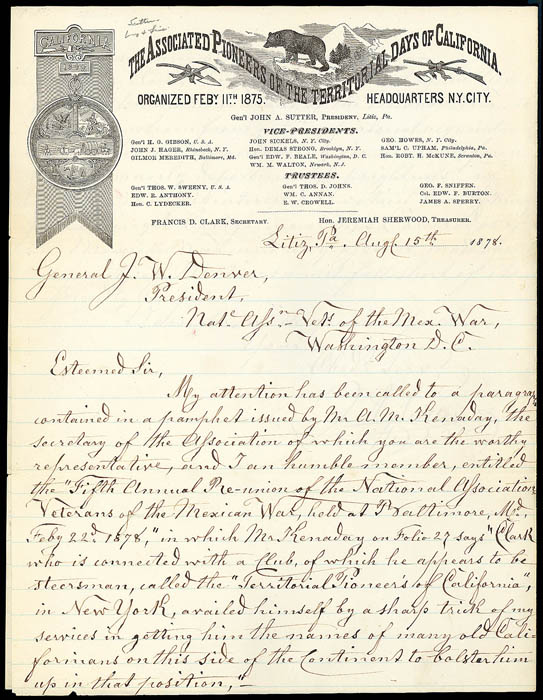 Sutter
CALIFORNIA
THE ASSOCIATED PIONEERS OF THE TERRITORIAL DAYS OF CALIFORNIA.
ORGANIZED FEBY 11TH 1875.
HEADQUARTERS N.Y. CITY.
Gen'l JOHN A. SUTTER, PRESIDENT, Litiz, Pa.
VICE-PRESIDENTS.
Gen'l H. G. GIBSON, U. S. A.
JOHN F. HAGER, Rhinebeck, N. Y.
GILMOR MEREDITH, Baltimore, Md.
JOHN SICKELS, N. Y. City.
Hon. DEMAS STRONG, Brooklyn, N. Y.
Gen'l EDW. F. BEALE, Washington, D. C.
WM. M. WALTON, Newark, N.J.
GEO. HOWES, N. Y. City.
SAM'L C. UPHAM, Philadelphia, Pa.
Hon. ROBT. H. McKUNE, Scranton, Pa.
TRUSTEES.
Gen'l THOS. W. SWEENY, U. S. A.
EDW. R. ANTHONY.
Hon. C. LYDECKER.
Gen'l THOS. D. JOHNS.
WM. C. ANNAN.
E. W. CROWELL.
GEO. F. SNIFFEN.
Col. EDW. F. BURTON.
JAMES A. SPERRY.
FRANCIS D. CLARK, SECRETARY.
Hon. JEREMIAH SHERWOOD, TREASURER.
Litiz, Pa. Augt. 15th 1878.
General J. W. Denver,
President,
Natl. Assn.- Vets. of the Mex. War,
Washington D.C.
Esteemed Sir,
My attention has been called to a paragraph
contained in a pamphet issued by Mr A. M. Kenaday, "the
secretary of the Association of which you are the worthy
representative, and I an humble member, entitled
the "Fifth Annual Re-union of the National Association
Veterans of the Mexican War, held at Baltimore, Md.
Feby 22d 1878," in which Mr. Kenaday on Folio 27 says "Clark
who is connected with a Club, of which he appears to be
steersman, called the "Territorial Pioneer's of California",
in New York, availed himself by a sharp trick of my
services in getting him the names of many old Cali-
fornians on this side of the Continent to bolster him
up in that position,"-